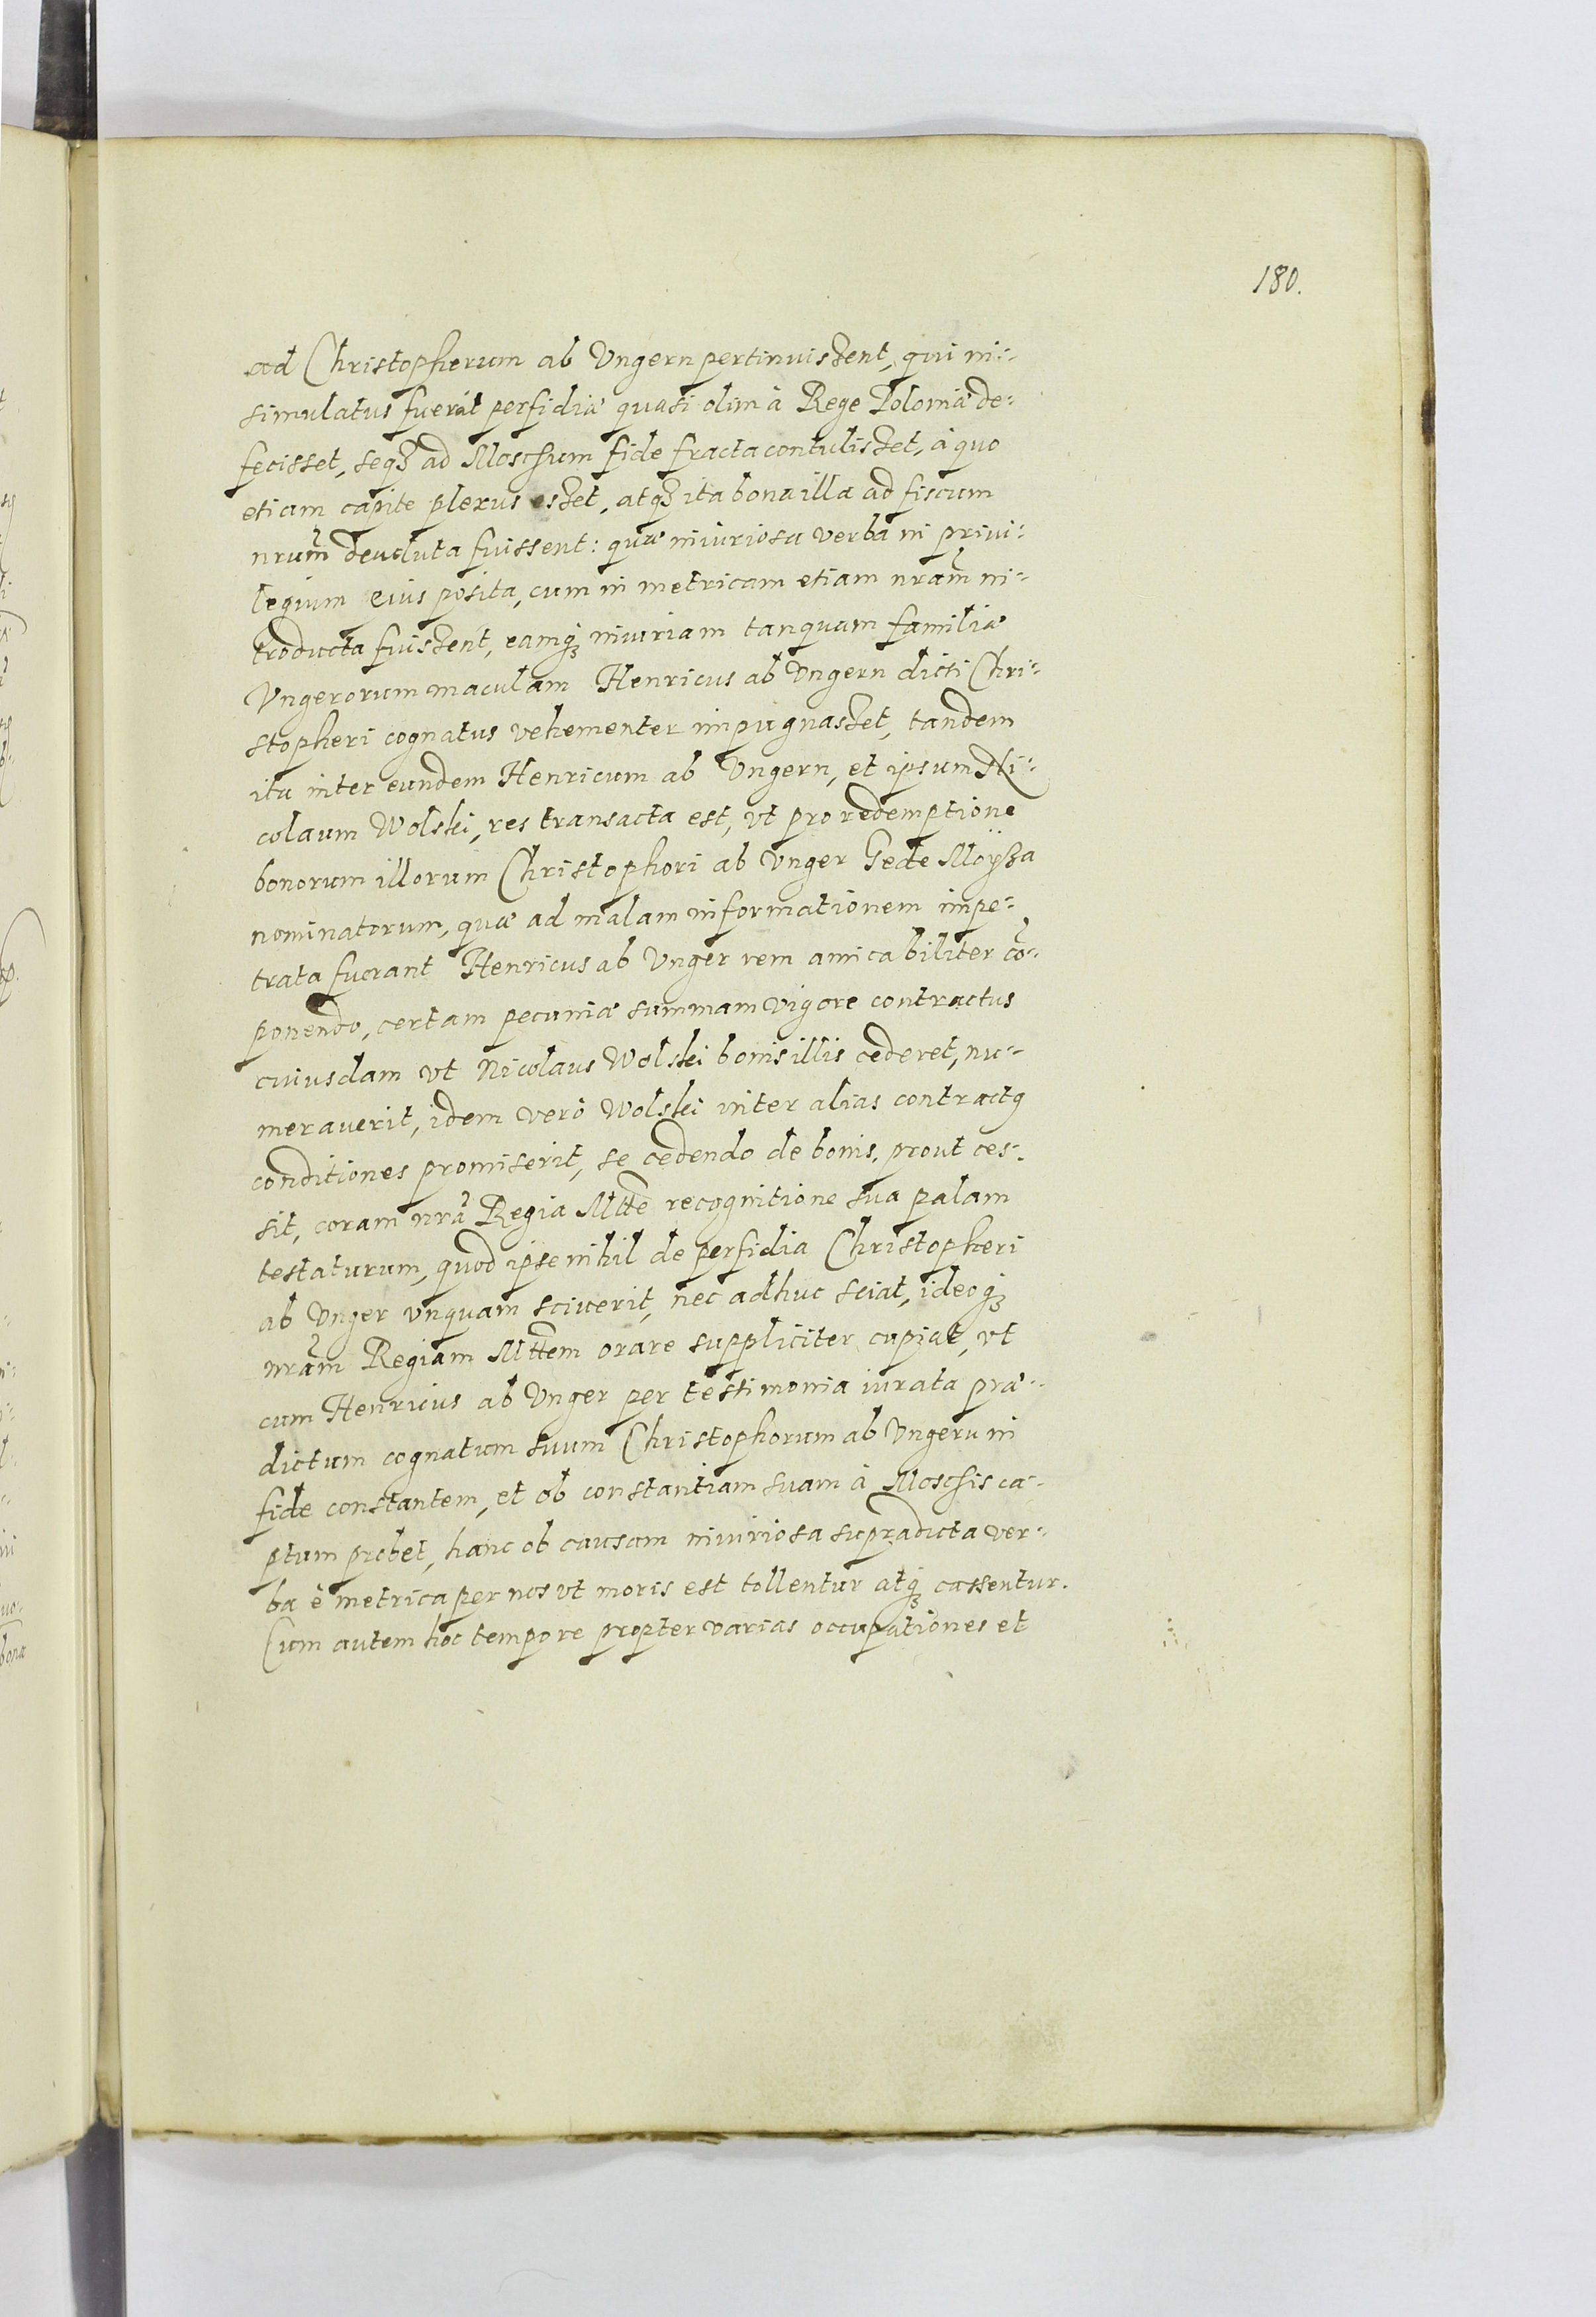 180.
ad Christopherum ab Ungern pertinuissent, qui in-
simulatus fuerat perfidiæ quasi olim à Rege Poloniæ de-
fecisset, seqȝ ad Moschum fide fracta contulisset, à quo
etiam capite plexus esset, atqȝ ita bona illa ad fiscum
nrum̃ deuoluta fuissent: quæ iniuriosa verba in priui-
legium eius posita, cum in metricam etiam nram̃ in-
troducta fuissent, eamqȝ iniuriam tanquam familiæ
Vngerorum maculam Henricus ab Vngern dicti Chri-
stopheri cognatus vehementer impugnasset, tandem
ita inter eundem Henricum ab Vngern, et ipsum Ni-
colaum Wolski, res transacta est, vt pro redemptione
bonorum illorum Christophori ab Vnger Gede Moÿza
nominatorum, quæ ad malam informationem impe-
trata fuerant Henricus ab Vnger rem amicabiliter cõ-
ponendo, certam pecuniæ summam vigore contractus
cuiusdam vt Nicolaus Wolski bonis illis cederet, nu-
merauerit, idem verò Wolski inter alias contractꝯ
conditiones promiserit, se cedendo de bonis, prout ces-
sit, coram nrã Regia Mtte recognitione sua palam
testaturum, quod ipse nihil de perfidia Christopheri
ab Vnger vnquam sciuerit, nec adhuc sciat, ideoqȝ
nram̃ Regiam Mttem orare suppliciter cupiat, vt
cum Henricus ab Vnger per testimonia iurata præ-
dictum cognatum suum Christophorum ab Vngern in
fide constantem, et ob constantiam suam à Moschis ca-
ptum probet, hanc ob causam iniuriosa supradicta ver-
ba è metrica per nos vt moris est tollentur atqȝ cassentur.
Cum autem hoc tempore propter varias occupationes et